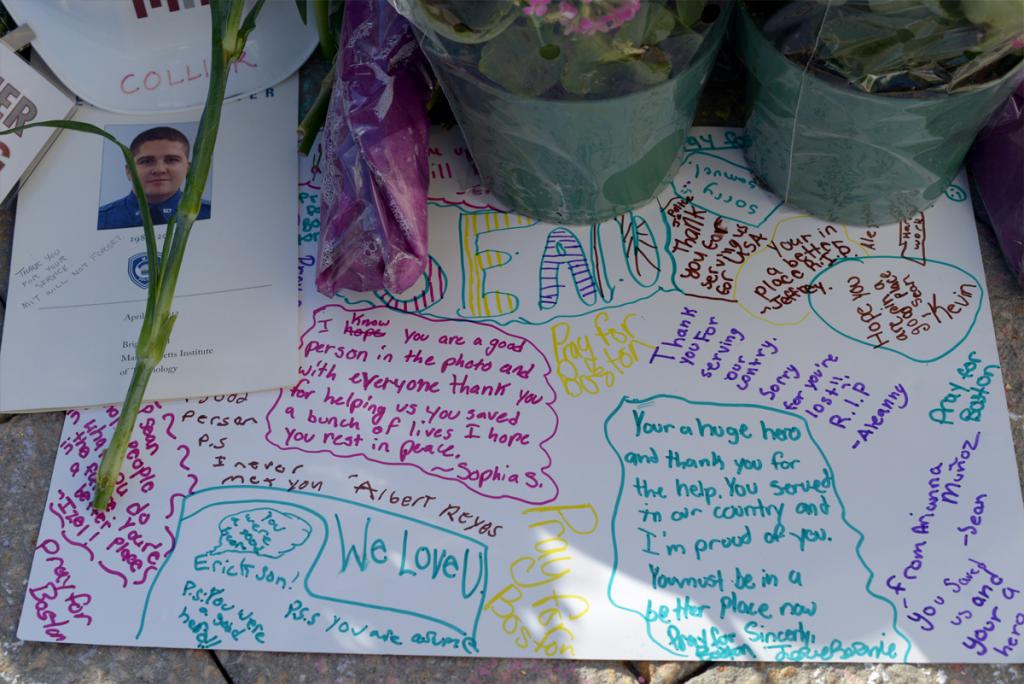 COLLIER
THANK YOU
FOR YOUR
SERVICE.
MIT WILL NOT FORGET
April
of Technology
SEAN
sorry
samuel
Thank
you for
serving us
for
USA
Your in
a better
place R.I.P
-Jeffrey.
Hard
work
Hope you
are when part of
-Kevin
I know hope you are a good
person in the photo and
with everyone thank you
for helping us you saved
a bunch of lives I hope
you rest in peace.
~Sophia S.
Pray for
Boston
Thank
you For
serving
our
contry.
Sorry
for you're
lost!!!
R.I.P
-Aleanny
Pray for
Boston
Good
Person
P.S
I never
met you
Albert Reyes
people
do
place
Pray for
Boston
You
were
good
Erickson!
P.s: You were
a good
hero!!
We Love U
P.S.s you are
Pray for
Boston
Your a huge hero
and thank you for
the help. You served
in our country and
I'm proud of you.
You must be in a
better place now
Sincerly,
Pray for
Boston
~from Arianna
Muñoz
you saved -Sean
us and
your a
hero